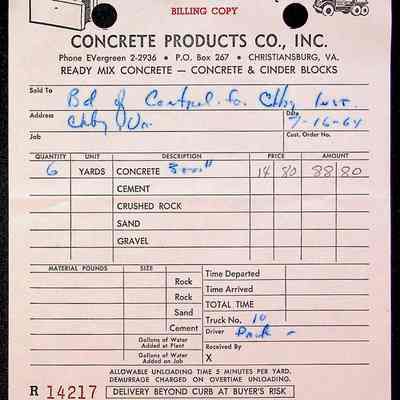 BILLING COPY
CONCRETE PRODUCTS CO., INC.
Phone EVergreen 2-2936 • P.O. Box 267 • CHRISTIANSBURG, VA.
READY MIX CONCRETE — CONCRETE & CINDER BLOCKS
Sold To Bd of Control for Chbg Inst.
Address Chbg Va. Date 7-16-64
Job Cust. Order No.
QUANTITY UNIT DESCRIPTION PRICE AMOUNT
6 YARDS CONCRETE 3000# 14 80 88 80
CEMENT
CRUSHED ROCK
SAND
GRAVEL
MATERIAL POUNDS SIZE Time Departed
Rock
Time Arrived
Rock
TOTAL TIME
Sand
Truck No. 10
Cement
Driver
Gallons of Water Added at Plant
Received By
Gallons of Water Added on Job X
ALLOWABLE UNLOADING TIME 5 MINUTES PER YARD.
DEMURRAGE CHARGED ON OVERTIME UNLOADING.
R 14217 DELIVERY BEYOND CURB AT BUYER'S RISK